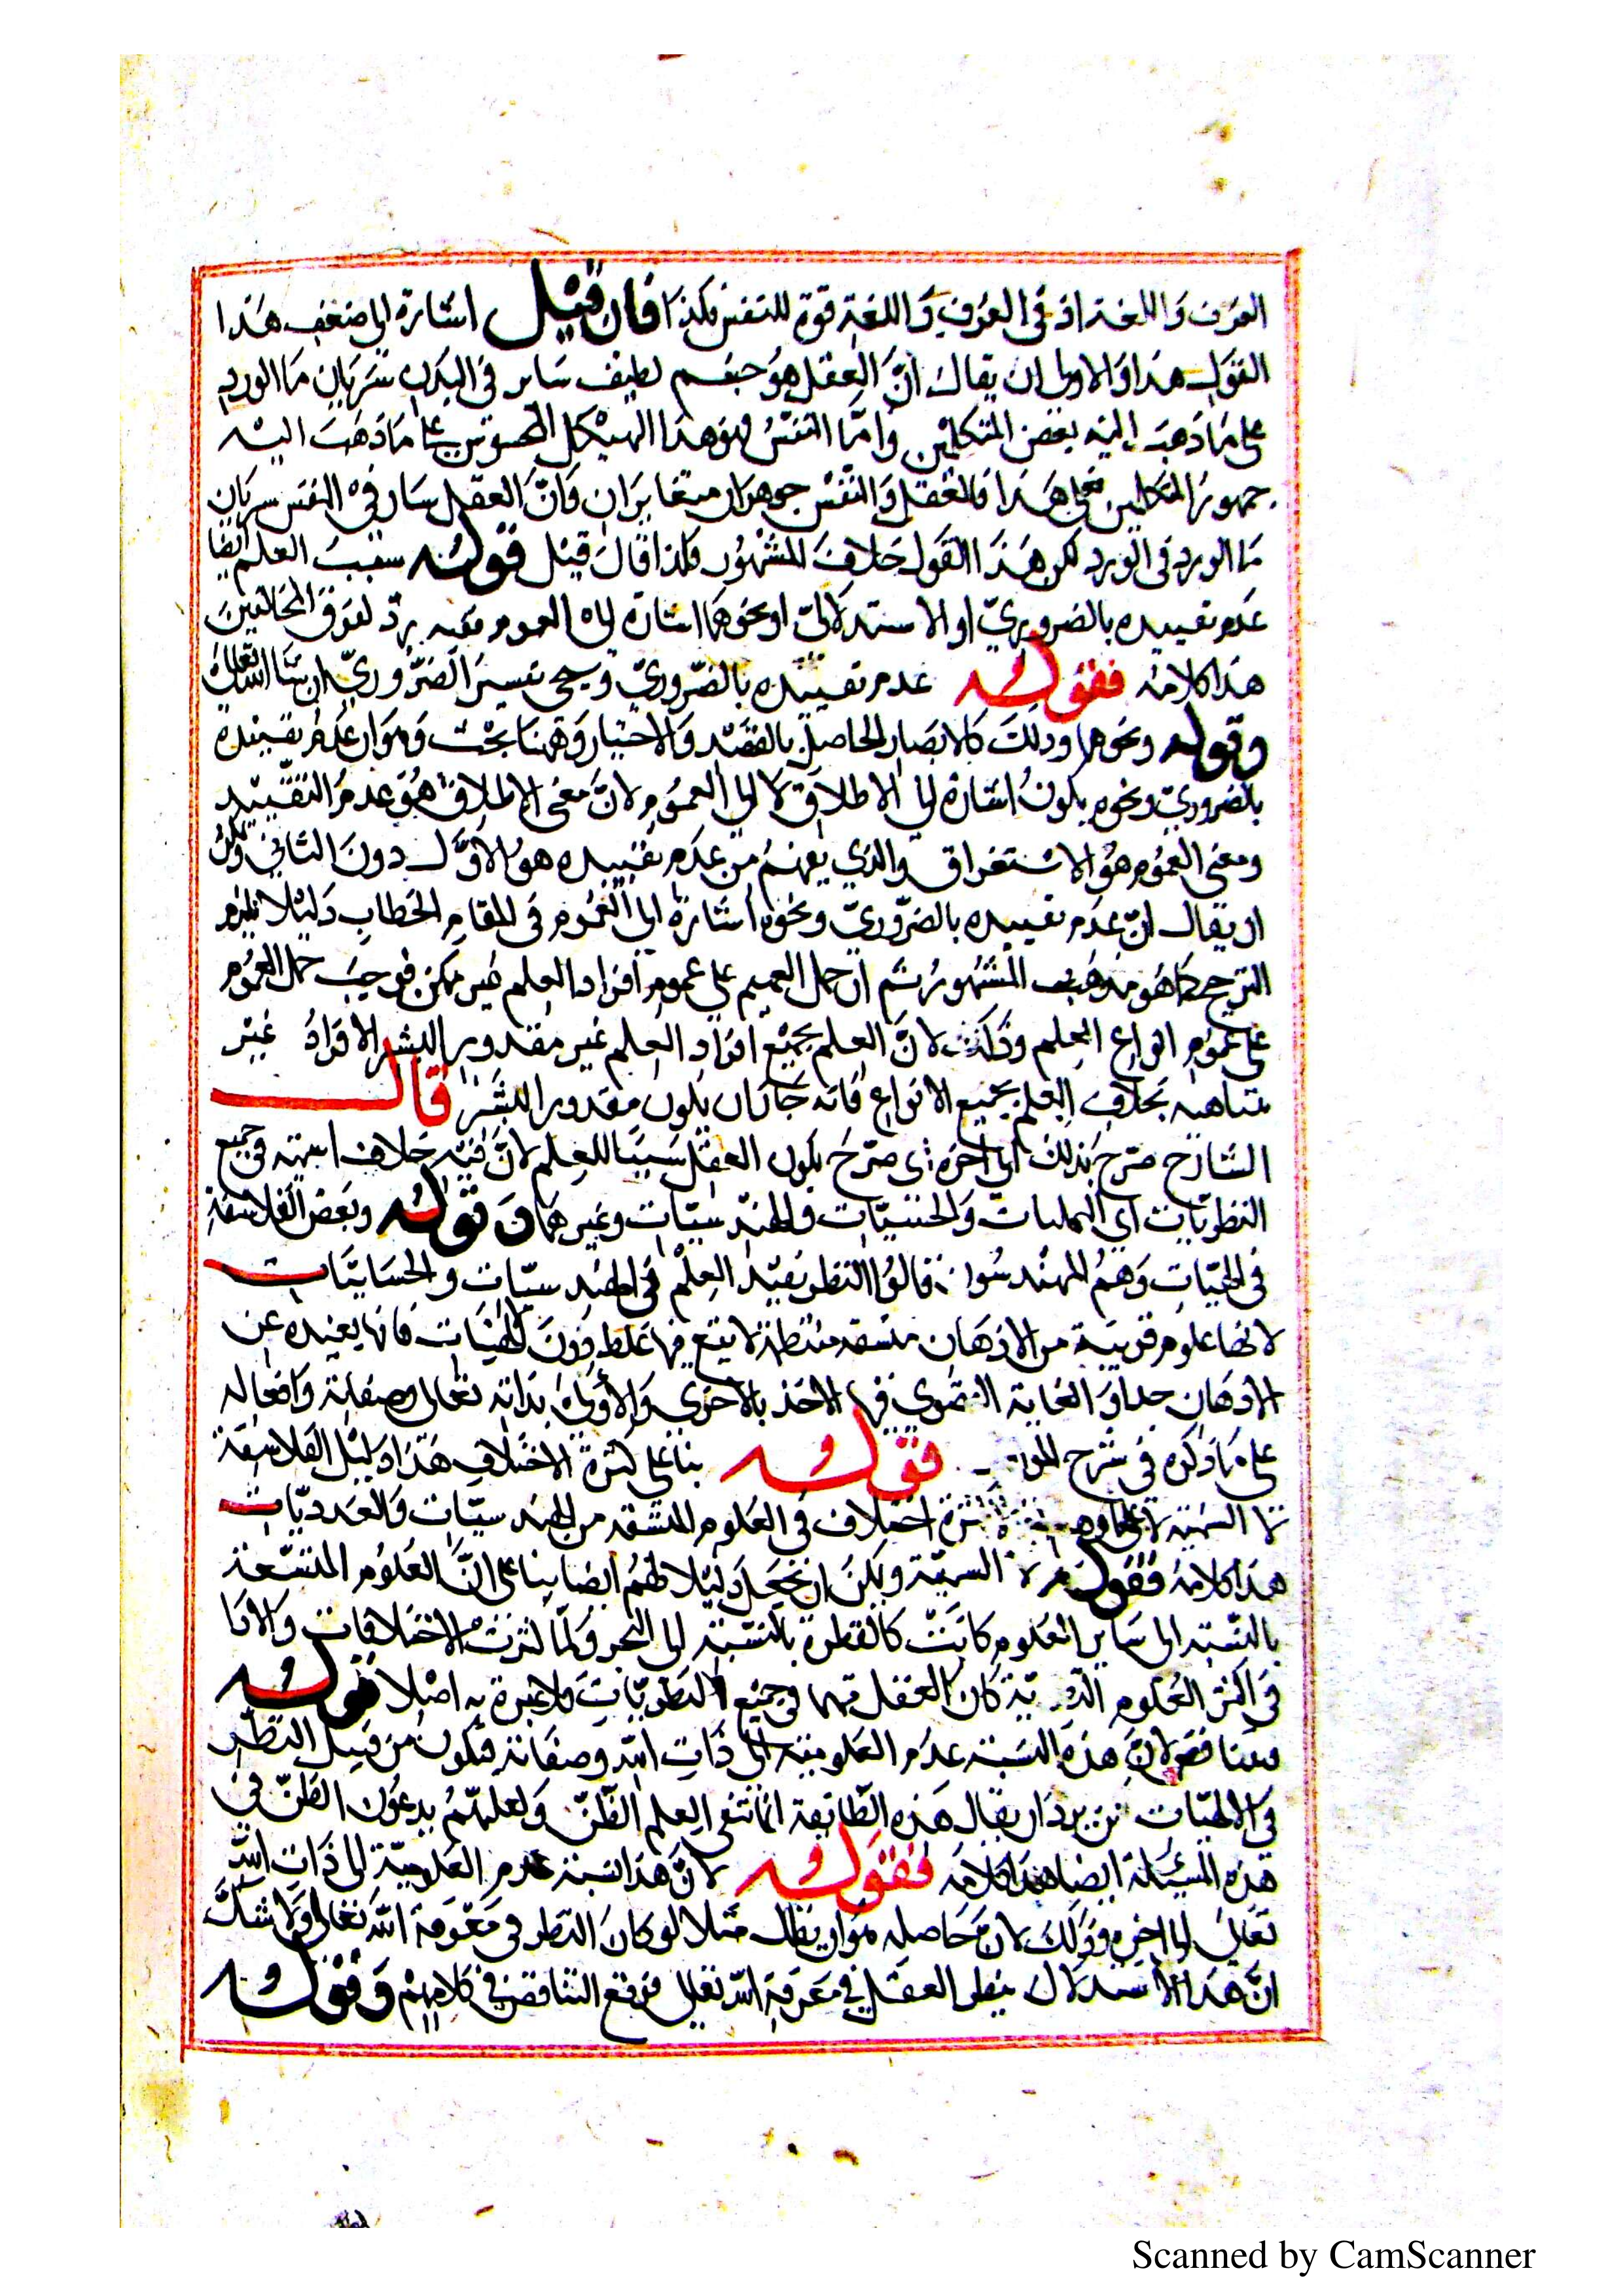 العرف واللغة اذ في العرف واللغة قوة للنفس فلذا فان قيل اشارة الى ضعف هذا
القول هذا والاولى ان يقال انّ العقل هو جسم لطيف سار في البدن سريان ماالورد
على ما ذهب إليه بعض المتكلمين وامّا النفس فهو هذا الهيكل المحسوس على ما ذهب اليه
جمهور المتكلمين فعلى هذا فالعقل والنفس جوهران متغايران وانّ العقل سار في النفس سريان
ماالورد في الورد لكن هذا القول خلاف المشهور فلذا قال قيل قوله سبب العلم ايضا
عدم تقييده بالضروريّ او الاستدلاليّ او نحوهما اشارة الى العموم ففيه ردّ لفرق المخالفين
هذا كلامه فقوله عدم تقييده بالضّروريّ وسيجى تفسير الضّروريّ ان شا الله تعالى
وقوله ونحوهما وذلك كالابصار الحاصل بالقصد والاختيار وههنا بحث وهو ان عدم تقييده
بالضروريّ ونحوه يكون اشارة الى الاطلاق لا الى العموم لانّ معنى الاطلاق هو عدم التقييد
ومعنى العموم هو الاستغراق والذي يفهم من عدم تقييده هو الاوّل دون الثاني
ان يقال انّ عدم تقييده بالضّروريّ ونحوه اشارة الى العموم في المقام الخطاب دليلا يلزم
الترجيح كما هو مذهب المشهور ثم ان حمل العميم على عموم افراد العلم غير ممكن فوجب حمل العموم
على عموم انواع العلم وذلك لانّ العلم بجميع افراد العلم غير مقدور البشر الافراد غير
متناهيه بخلاف العلم بجميع الانواع فانه جاز ان يكون مقدور البشر قال
الشارح صرّح بذلك الى اخره اى صرّح بكون العقل سببا للعلم لانّ فيه خلاف السمنية في جميع
النظريات اي والحسيّات والهندسيّات وغيرهما قوله وبعض الفلاسفة
في الهيّات وهم المهندسون قالوا النظر يفيد العلم في الهندسيّات والحسابيّات
لانها علوم قريبة من الاذهان متسقه منتظمة لا يقع فيها غلط دون الالهيّات فانها بعيده عن
الاذهان جدا والغاية القصوى فيها الاخذ بالاحرى والاولى بذاته تعالى وصفاته وافعاله
على ما ذكره في شرح قوله بنا على كثرة الاختلاف هذا دليل الفلاسفة
لا السمنية اختلاف في العلوم المتسقه من الهندسيّات والعدديّات
هذا كلامه فقوله لا السمنيّة ويمكن ان يجعل دليلا لهم ايضا بنا على انّ العلوم المتسّعة
بالنّسبة الى ساير العلوم كانت كالقطرة بالنسبة الى البحر ولمّا كثرت الاختلافات والارا
في اكثر العلوم كان العقل في جميع النظريّات فلا عبرة به اصلا قوله
فيتناقض لانّ هذه النسبة عدم المعلوميّة الى ذات الله وصفاته فيكون من قبيل النظر
في الالهيّات يرد ان يقال هذه الطايفة انما تنفى العلم الظّنّ ولعلهم يدعون الظنّ في
هذه المسئلة ايضا هذا كلامه فقوله لانّ هذا نسبة عدم المعلوميّة الى ذات الله
تعالى الى اخره وذلك لانّ حاصله هو ان يقال مثلا لو كان النظر في معرفة الله تعالى ولا شك
انّ هذا الاستدلال بنظر العقل في معرفة الله تعالى فوقع التناقض في كلامهم وقوله
Scanned by CamScanner